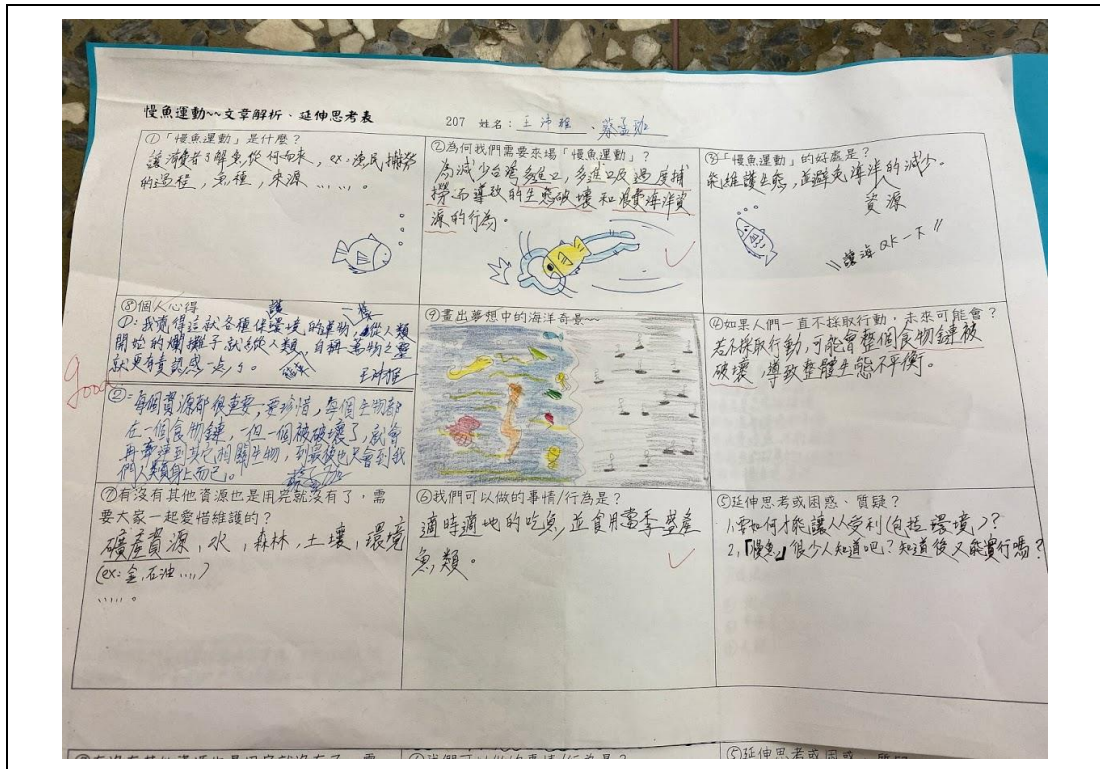 慢魚運動~~文章解析、延伸思考表
207 姓名:王沛程、蔡孟珈
①「慢魚運動」是什麼?
讓消費者了解魚從何而來,ex:漁民捕撈
的過程,魚種,來源……。
②為何我們需要來場「慢魚運動」?
為減少台灣多進口,多進口及過度捕
撈而導致的生態破壞和浪費海洋資
源的行為。
③「慢魚運動」的好處是?
能維護生態,並避免海洋的減少。
資源
"讓海QK一下"
⑧個人心得
①:我覺得這就各種保環境的 從人類
護 樣
開始的爛攤子就 從人類 自稱萬物之靈
就更有責 感一点
Good
②:每個資源都很重要,要珍惜,每個生物都
在一個食物鏈,一但一個被破壞了,就會
再牽連到其它相關生物,到最後也只會到我
們人類身上而已。
⑨畫出夢想中的海洋奇景~~
④如果人們一直不採取行動,未來可能會?
若不採取行動,可能會整個食物鏈被
破壞,導致整體生態不平衡。
⑦有沒有其他資源也是用完就沒有了,需
要大家一起愛惜維護的?
礦產資源,水,森林,土壤,環境
(ex:金,石油....)
.....。
⑥我們可以做的事情/行為是?
適時適地的吃魚,並食用當季盛產
魚類。
⑤延伸思考或困惑、質疑?
1.要如何才能讓人人受利(包括環境)?
2.『慢魚』很少人知道吧?知道後又能實行嗎?